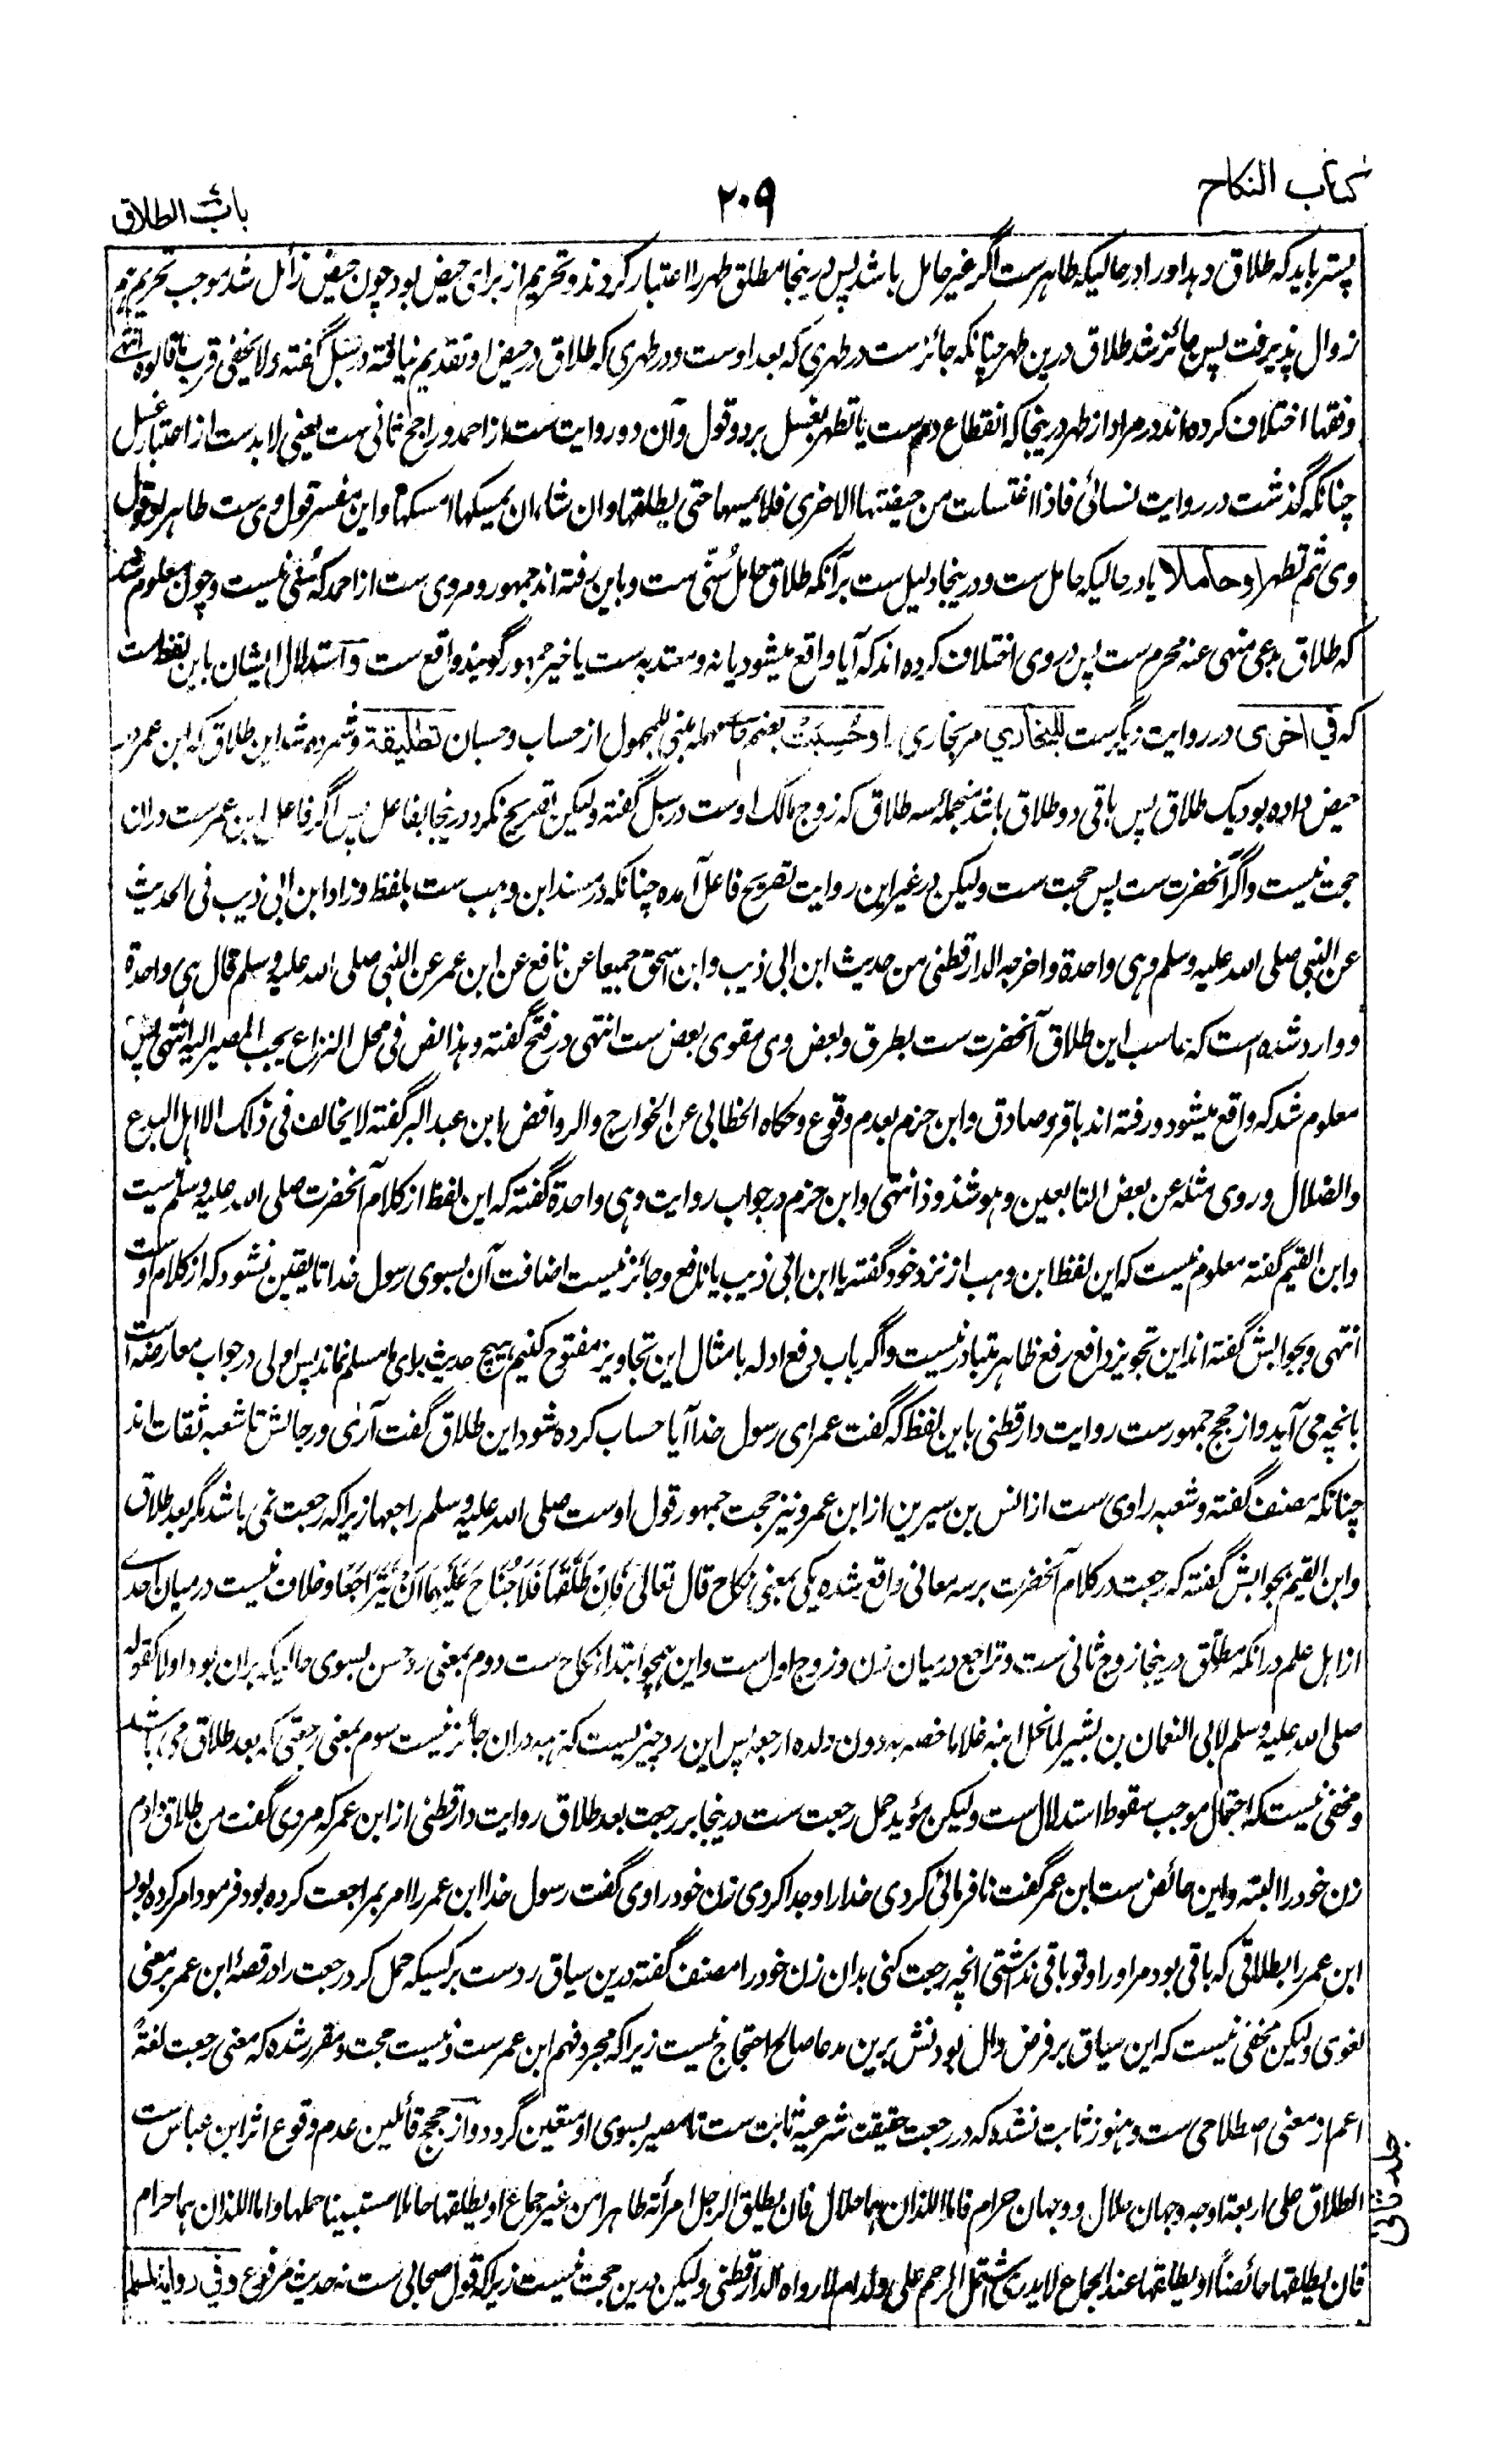 کتاب النکاح
۲۰۹
باب الطلاق
پستر باید که طلاق دهد او را در حالیکه طاهرست اگر غیر حامل باشد پس درینجا مطلق طهر را اعتبار کردند و تحریم از برای حیض بود چون حیض زائل شد موجب تحریم هم
زوال پذیرفت پس جائز شد طلاق درین طهر چنانکه جائزست در طهری که بعد اوست و در طهری که طلاق در حیض او تقدیم نیافته در سبل گفته ولا یخفی قرب ما قالوه انتهی
و فقها اختلاف کرده اند در مراد از طهر درینجا که انقطاع دم ست یا تطهر بغسل بر دو قول و آن دو روایت ست از احمد و راجح ثانی ست یعنی لابدست از اعتبار غسل
چنانکه گذشت در روایت نسائی فاذا اغتسلت من حیضتها الاخری فلا یمسها حتی یطلقها وان شاء ان یمسکها امسکها و این مفسر قول وی ست طاهر او قول
وی ثم تطهر او حاملا یا در حالیکه حامل ست و درینجا دلیل ست بر آنکه طلاق حامل سنی ست و باین رفته اند جمهور و مروی ست از احمد که سنی نیست و چون معلوم شد
که طلاق بدعی منهی عنه محرم ست پس در وی اختلاف کرده اند که آیا واقع میشود یا نه و معتد به ست یا خیر جمهور گویند واقع ست و استدلال ایشان باین لفظ ست
که فی اخری در روایت دیگرست للبخاری مر بخاری را وحسبت بضم حاء مهمله مبنی للمجهول از حساب و حسبان تطلیقة و شمرده شد این طلاق که ابن عمر در
حیض داده بود یک طلاق پس باقی دو طلاق باشد منجمله سه طلاق که زوج مالک اوست در سبل گفته ولیکن تصریح نکرد درینجا بفاعل پس اگر فاعل ابن عمرست دران
حجت نیست و اگر آنحضرت ست پس حجت ست ولیکن در غیر این روایت تصریح فاعل آمده چنانکه در مسند ابن وهب ست بلفظ وزاد ابن ابی ذیب فی الحدیث
عن النبی صلی الله علیه وسلم وهی واحدة واخرجه الدارقطنی من حدیث ابن ابی ذیب وابن اسحق جمیعا عن نافع عن ابن عمر عن النبی صلی الله علیه وسلم قال هی واحدة
و وارد شده است که حاسب این طلاق آنحضرت ست بطرق و بعض وی مقوی بعض ست انتهی در فتح گفته وهذا نص فی محل النزاع یجب المصیر الیه انتهی پس
معلوم شد که واقع میشود و رفته اند باقر و صادق و ابن حزم بعدم وقوع وحکاه الخطابی عن الخوارج والروافض ابن عبد البر گفته لا یخالف فی ذلک الا اهل البدع
والضلال وروی مثله عن بعض التابعین وهو شذوذ انتهی و ابن حزم در جواب روایت وهی واحدة گفته که این لفظ از کلام آنحضرت صلی الله علیه وسلم نیست
و ابن القیم گفته معلوم نیست که این لفظ ابن وهب از نزد خود گفته یا ابن ابی ذیب یا نافع و جائز نیست اضافت آن بسوی رسول خدا تا یقین نشود که از کلام اوست
انتهی و بجوابش گفته اند این تجویز دافع رفع ظاهر متبادر نیست و اگر باب دفع ادله بامثال این تجاویز مفتوح کنیم هیچ حدیث برای ما مسلم نماند پس اولی در جواب معارضه است
بانچه می آید و از حجج جمهورست روایت دارقطنی باین لفظ که گفت عمر ای رسول خدا آیا حساب کرده شود این طلاق گفت آری و رجالش تا شعبه ثقات اند
چنانکه مصنف گفته و شعبه راوی ست از انس بن سیرین از ابن عمر و نیز حجت جمهور قول اوست صلی الله علیه وسلم راجعها زیرا که رجعت نمی باشد مگر بعد طلاق
و ابن القیم بجوابش گفته که رجعت در کلام آنحضرت بر سه معانی واقع شده یکی بمعنی نکاح قال تعالی فَاِنْ طَلَّقَهَا فَلَا جُنَاحَ عَلَیْهِمَا اَنْ یَّتَرَاجَعَا و خلاف نیست در میان احدے
از اهل علم در آنکه مطلق درینجا زوج ثانی ست و تراجع در میان زن و زوج اول ست و این همچو ابتداء نکاح ست دوم بمعنی رد حسن بسوی حالیکه بران بود اولا کقوله
صلی الله علیه وسلم لابی النعمان بن بشیر لما نحل ابنه غلاما خصه به دون ولده ارجعه پس این رد چیزیست که هبه دران جائز نیست سوم بمعنی رجعتی که بعد طلاق می باشد
و مخفی نیست که احتمال موجب سقوط استدلال ست ولیکن مؤید حمل رجعت ست درینجا بر رجعت بعد طلاق روایت دارقطنی از ابن عمر که مردی گفت من طلاق دادم
زن خود را البته و این حائض ست ابن عمر گفت نافرمانی کردی خدا را و جدا کردی زن خود را وی گفت رسول خدا ابن عمر را امر بمراجعت کرده بود فرمود امر کرده بود
ابن عمر را بطلاقی که باقی بود مر او را و تو باقی نداشتی انچه رجعت کنی بدان زن خود را مصنف گفته درین سیاق ردست بر کسیکه حمل کرد رجعت را در قصۀ ابن عمر بر معنی
لغوی ولیکن مخفی نیست که این سیاق بر فرض دال بودنش برین مدعا صالح احتجاج نیست زیرا که مجرد فهم ابن عمرست و نیست حجت و مقرر شده که معنی رجعت لغةً
اعم از معنی اصطلاحی ست و هنوز ثابت نشده که در رجعت حقیقت شرعیة ثابت ست تا مصیر بسوی او متعین گردد و از حجج قائلین عدم وقوع اثر ابن عباس ست
الطلاق علی اربعة اوجه وجهان حلال ووجهان حرام فاما اللذان هما حلال فان یطلق الرجل امرأته طاهرا من غیر جماع او یطلقها حاملا مستبینا حملها واما اللذان هما حرام
فان یطلقها حائضاً او یطلقها عند الجماع لا یدری اشتمل الرحم علی ولد ام لا رواه الدارقطنی ولیکن درین حجت نیست زیرا که قول صحابی ست نه حدیث مرفوع وفی روایة لمسلم
جلد ثانی